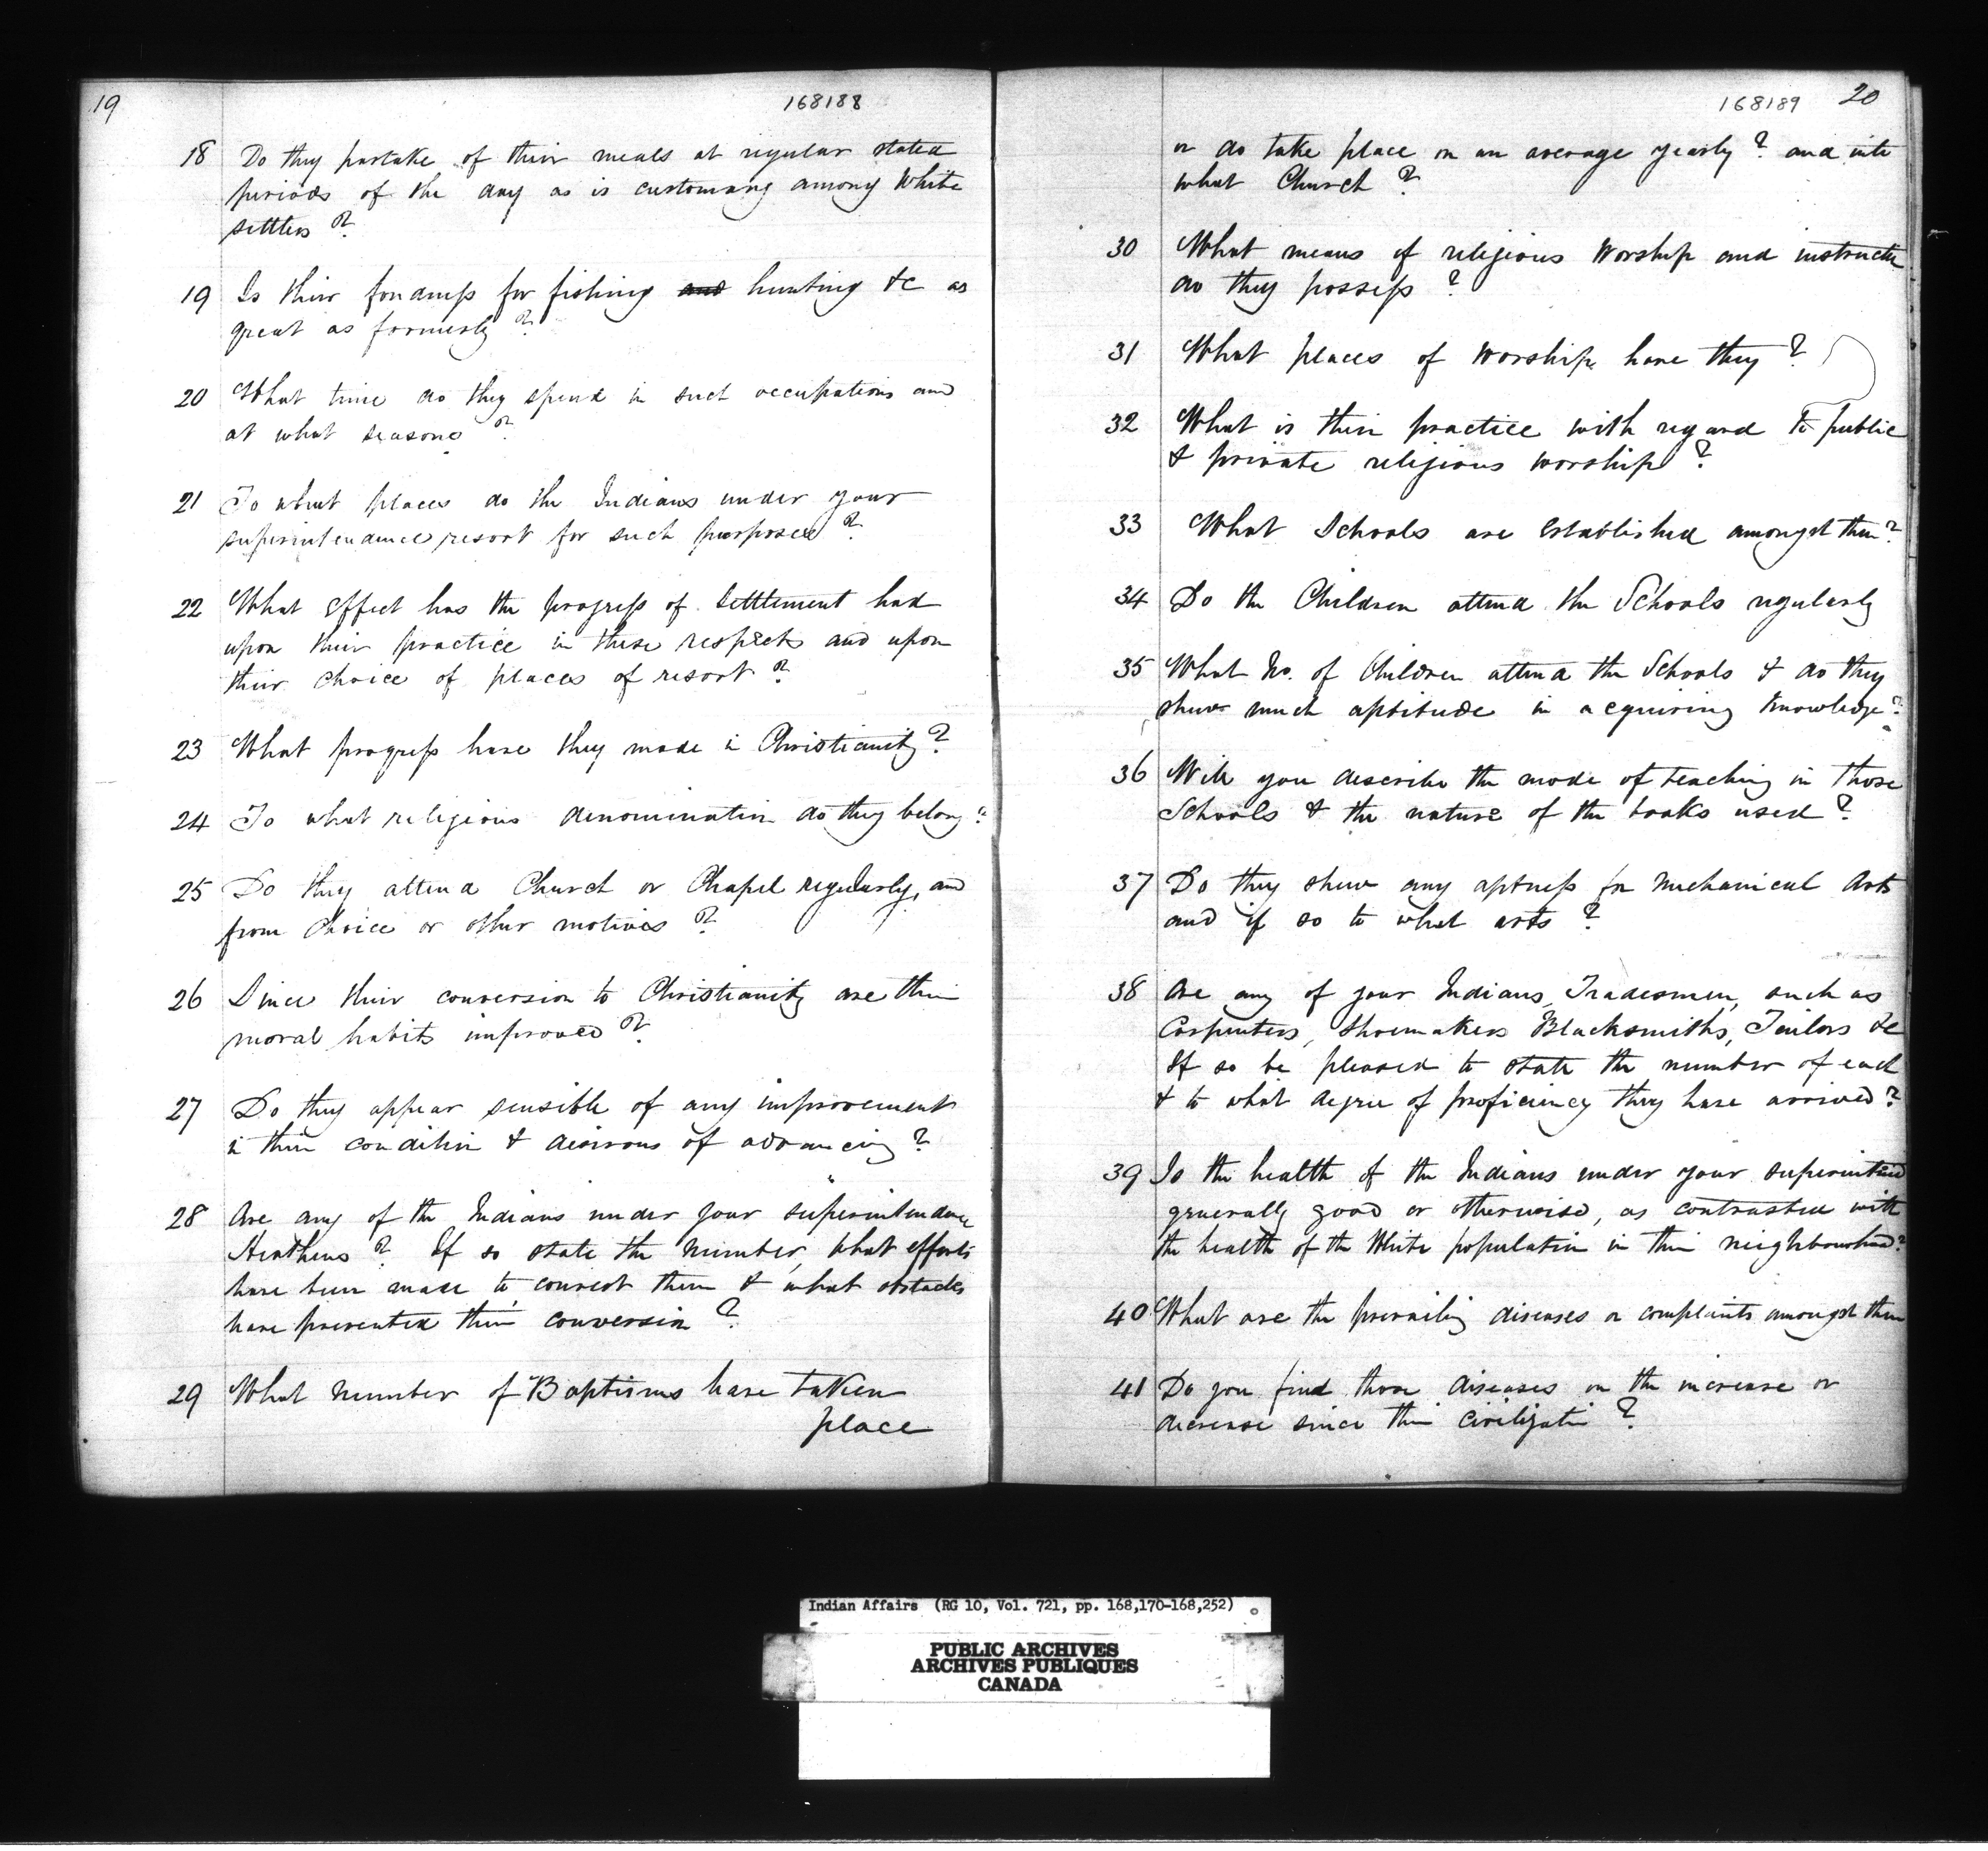 19
168188
18 Do they partake of their meals at regular stated
periods of the day as is customary among White
settlers?
19 Is their fondness for fishing and hunting &c as
great as formerly?
20 What time do they spend in such occupations and
at what seasons?
21 To what places do the Indians under your
superintendence resort for such purposes?
22 What effect has the progress of Settlement had
upon their practice in these respects and upon
their choice of places of resort?
23 What progress have they made in Christianity?
24 To what religious denomination do they belong?
25 Do they attend Church or Chapel regularly, and
from Choice or other motives?
26 Since their conversion to Christianity are their
moral habits improved?
27 Do they appear sensible of any improvement
in their condition & desirous of advancing?
28 Are any of the Indians under your superintendence
Heathens? If so state the number, what efforts
have been made to convert them & what obstacles
have prevented their conversion?
29 What number of Baptisms have taken
place
168189
20
or do take place on an average yearly? and into
what Church?
30 What means of religious Worship and instructn
do they possess?
31 What places of worship have they?
32 What is their practice with regard to public
& private religious worship?
33 What Schools are established amongst them?
34 Do the Children attend the Schools regularly
35 What No. of Children attend the Schools & do they
shew much aptitude in acquiring knowledge?
36 Will you describe the mode of teaching in those
Schools & the nature of the books used?
37 Do they shew any aptness for mechanical Arts
and if so to what arts?
38 Are any of your Indians, Tradesmen, such as
Carpenters, Shoemakers Blacksmiths, Tailors &c
If so be pleased to state the number of each
& to what degree of proficiency they have arrived?
39 Is the health of the Indians under your superintend
generally good or otherwise, as contrasted with
the health of the White population in their neighbourhood?
40 What are the prevailing diseases or complaints amongst them
41 Do you find those diseases on the increase or
decrease since their civilizatn?
Indian Affairs (RG 10, Vol. 721, pp. 168,170-168,252)
PUBLIC ARCHIVES
ARCHIVES PUBLIQUES
CANADA